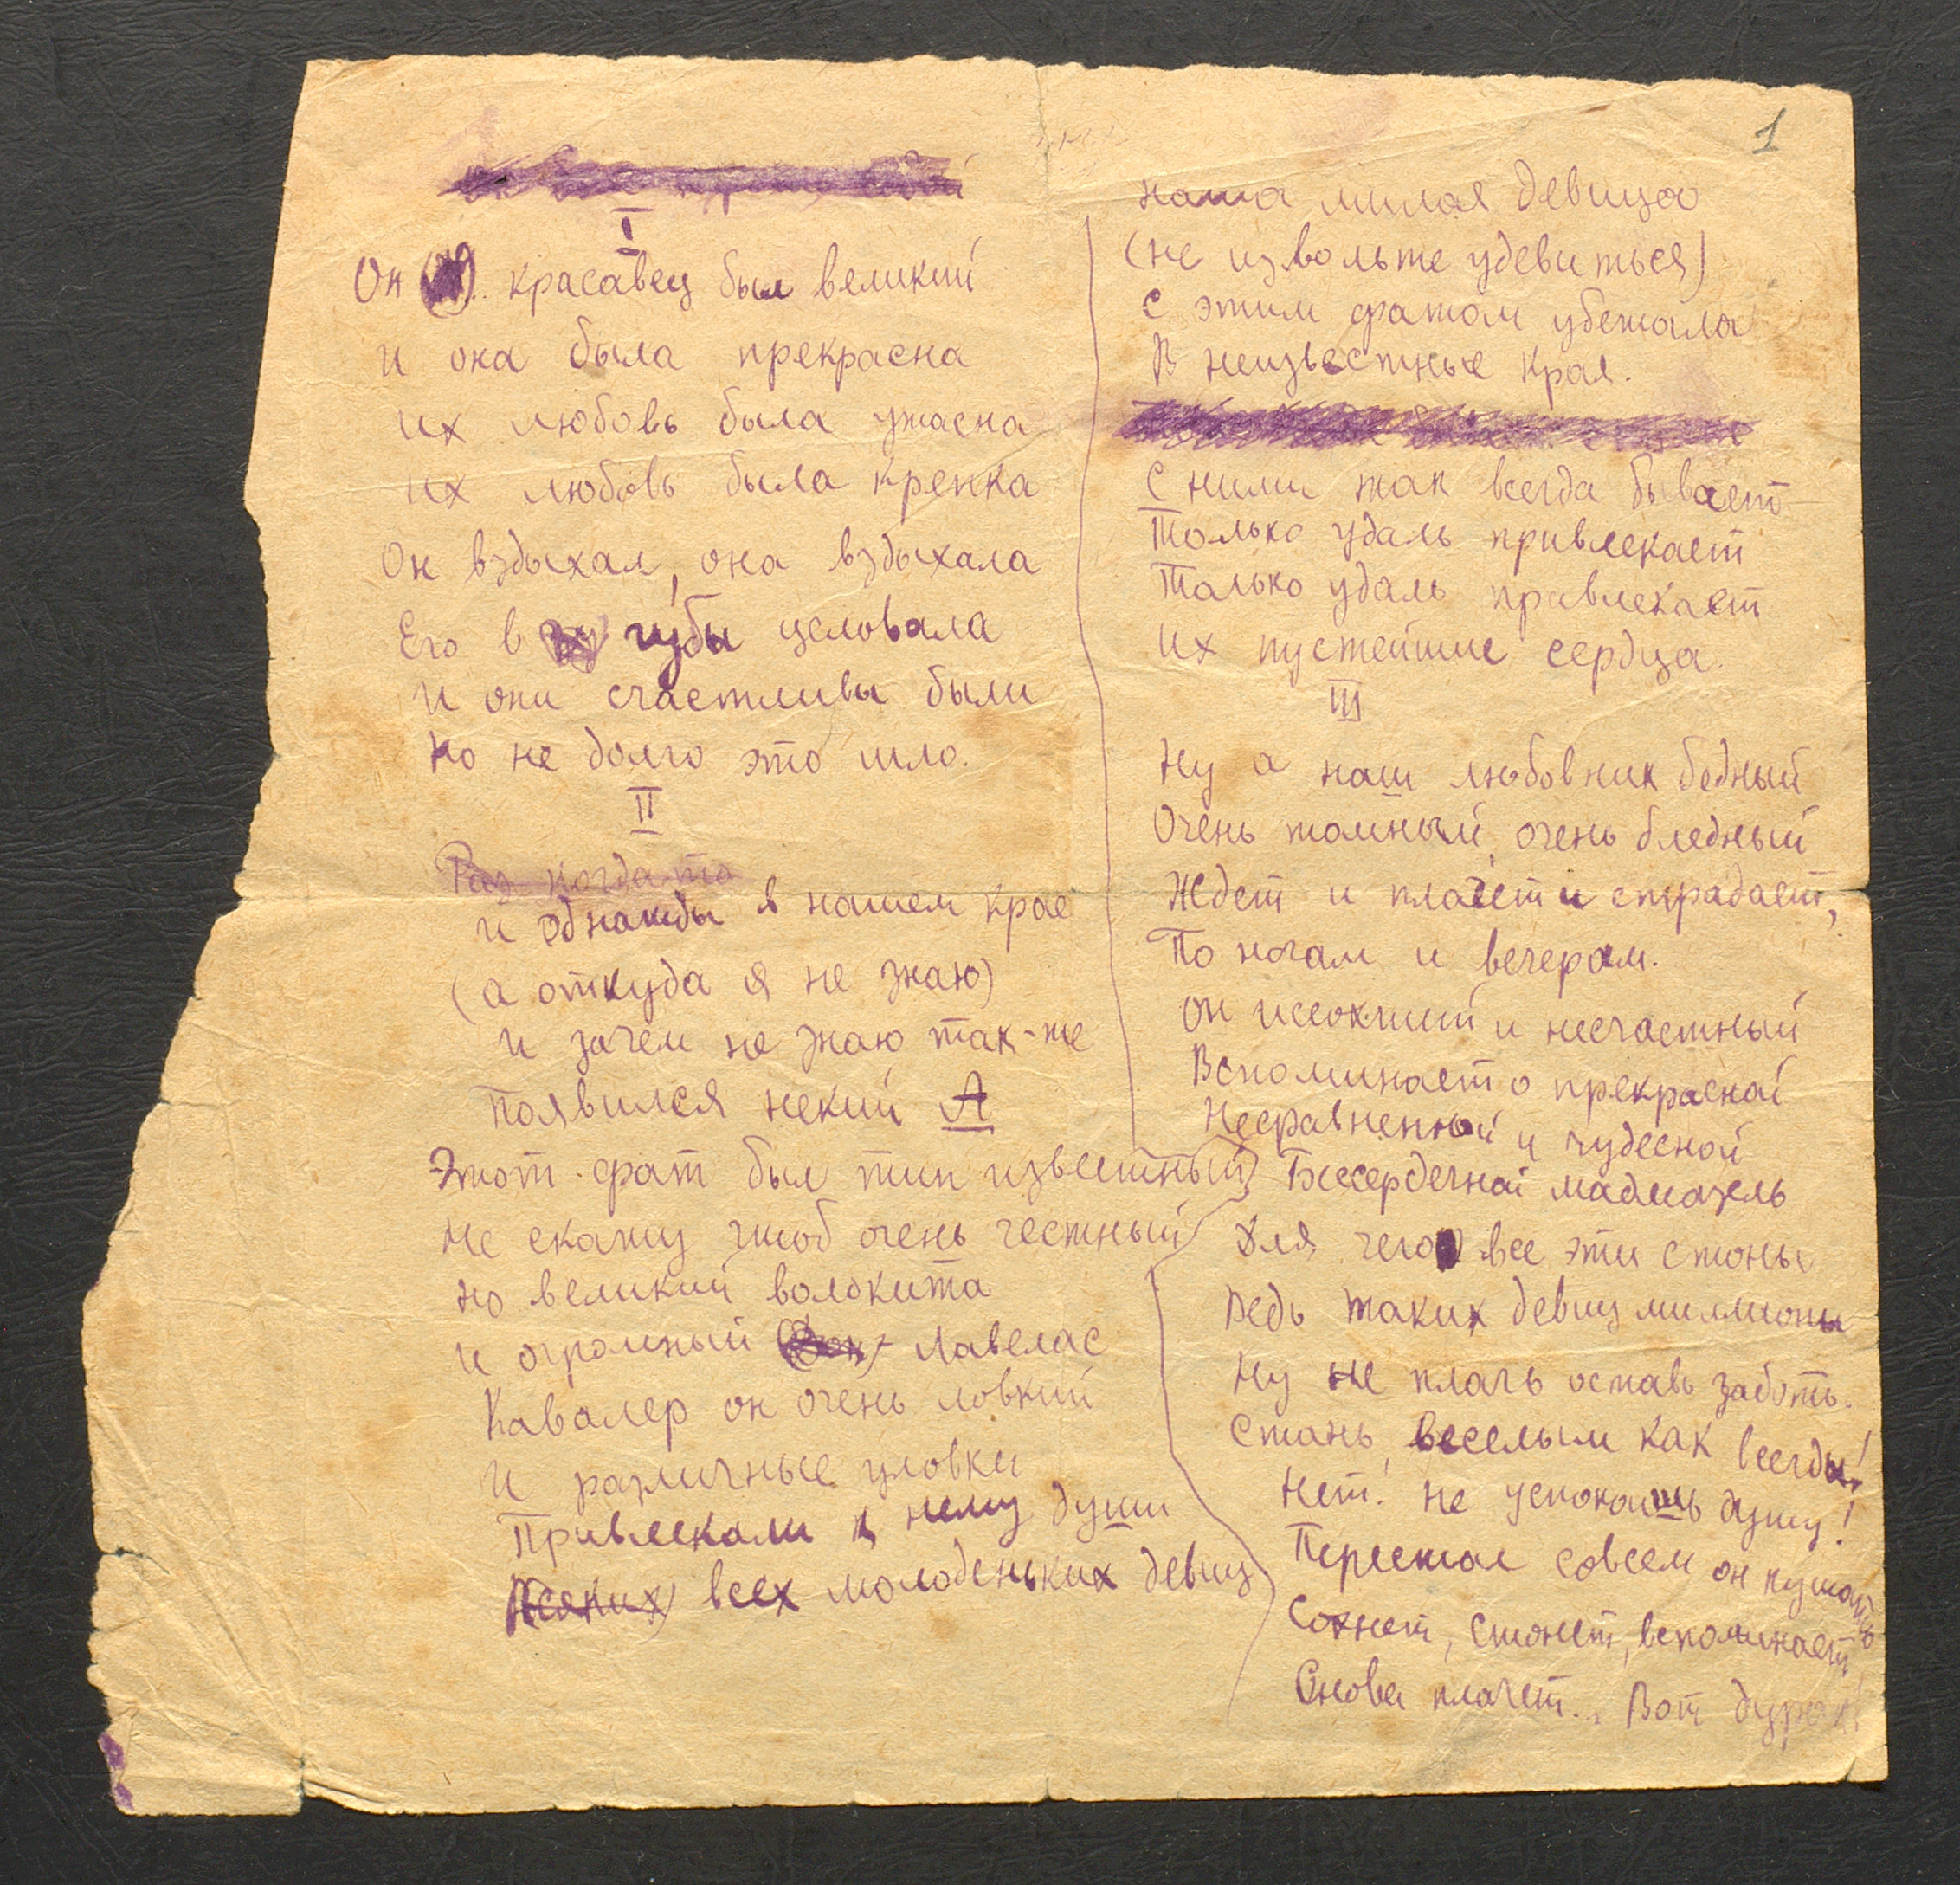 I
Он красавец был великий
и она была прекрасна
их любовь была ужасна
их любовь была крепка
Он вздыхал, она вздыхала
Его в губы целовала
и они счастливы были
но не долго это шло.
II
Раз когда то
и однажды в нашем крае
(а откуда я не знаю)
и зачем не знаю так-же
появился некий А
Этот фрат был тип известный
не скажу чтоб очень честный
но великий волокита
и огромный Дон- Лавелас
Кавалер он очень ловкий
и различные уловки
Привлекали к нему души
Всяких всех молоденьких девиц
1
наша милая девица
(не извольте удевиться)
с этим фратом убежала
В неизвестные края.
С ними так всегда бывает
Только удаль привлекает
Только удаль правлекает
их пустейшие сердца.
III
Ну а наш любовник бедный
Очень томный, очень бледный
Ждет и плачет и страдает,
По ночам и вечерам.
он иссохший и несчастный
Вспоминает о прекрасной
Несравненной и чудесной
Бессердечной мадмазель
Для чего все эти стоны
Ведь таких девиц миллионы
Ну не плачь оставь заботы.
Стань веселым как всегда!
Нет! не успокоишь душу!
Перестал совсем он кушать
Сохнет, стонет, вспоминает
Снова плачет... Вот дурак!